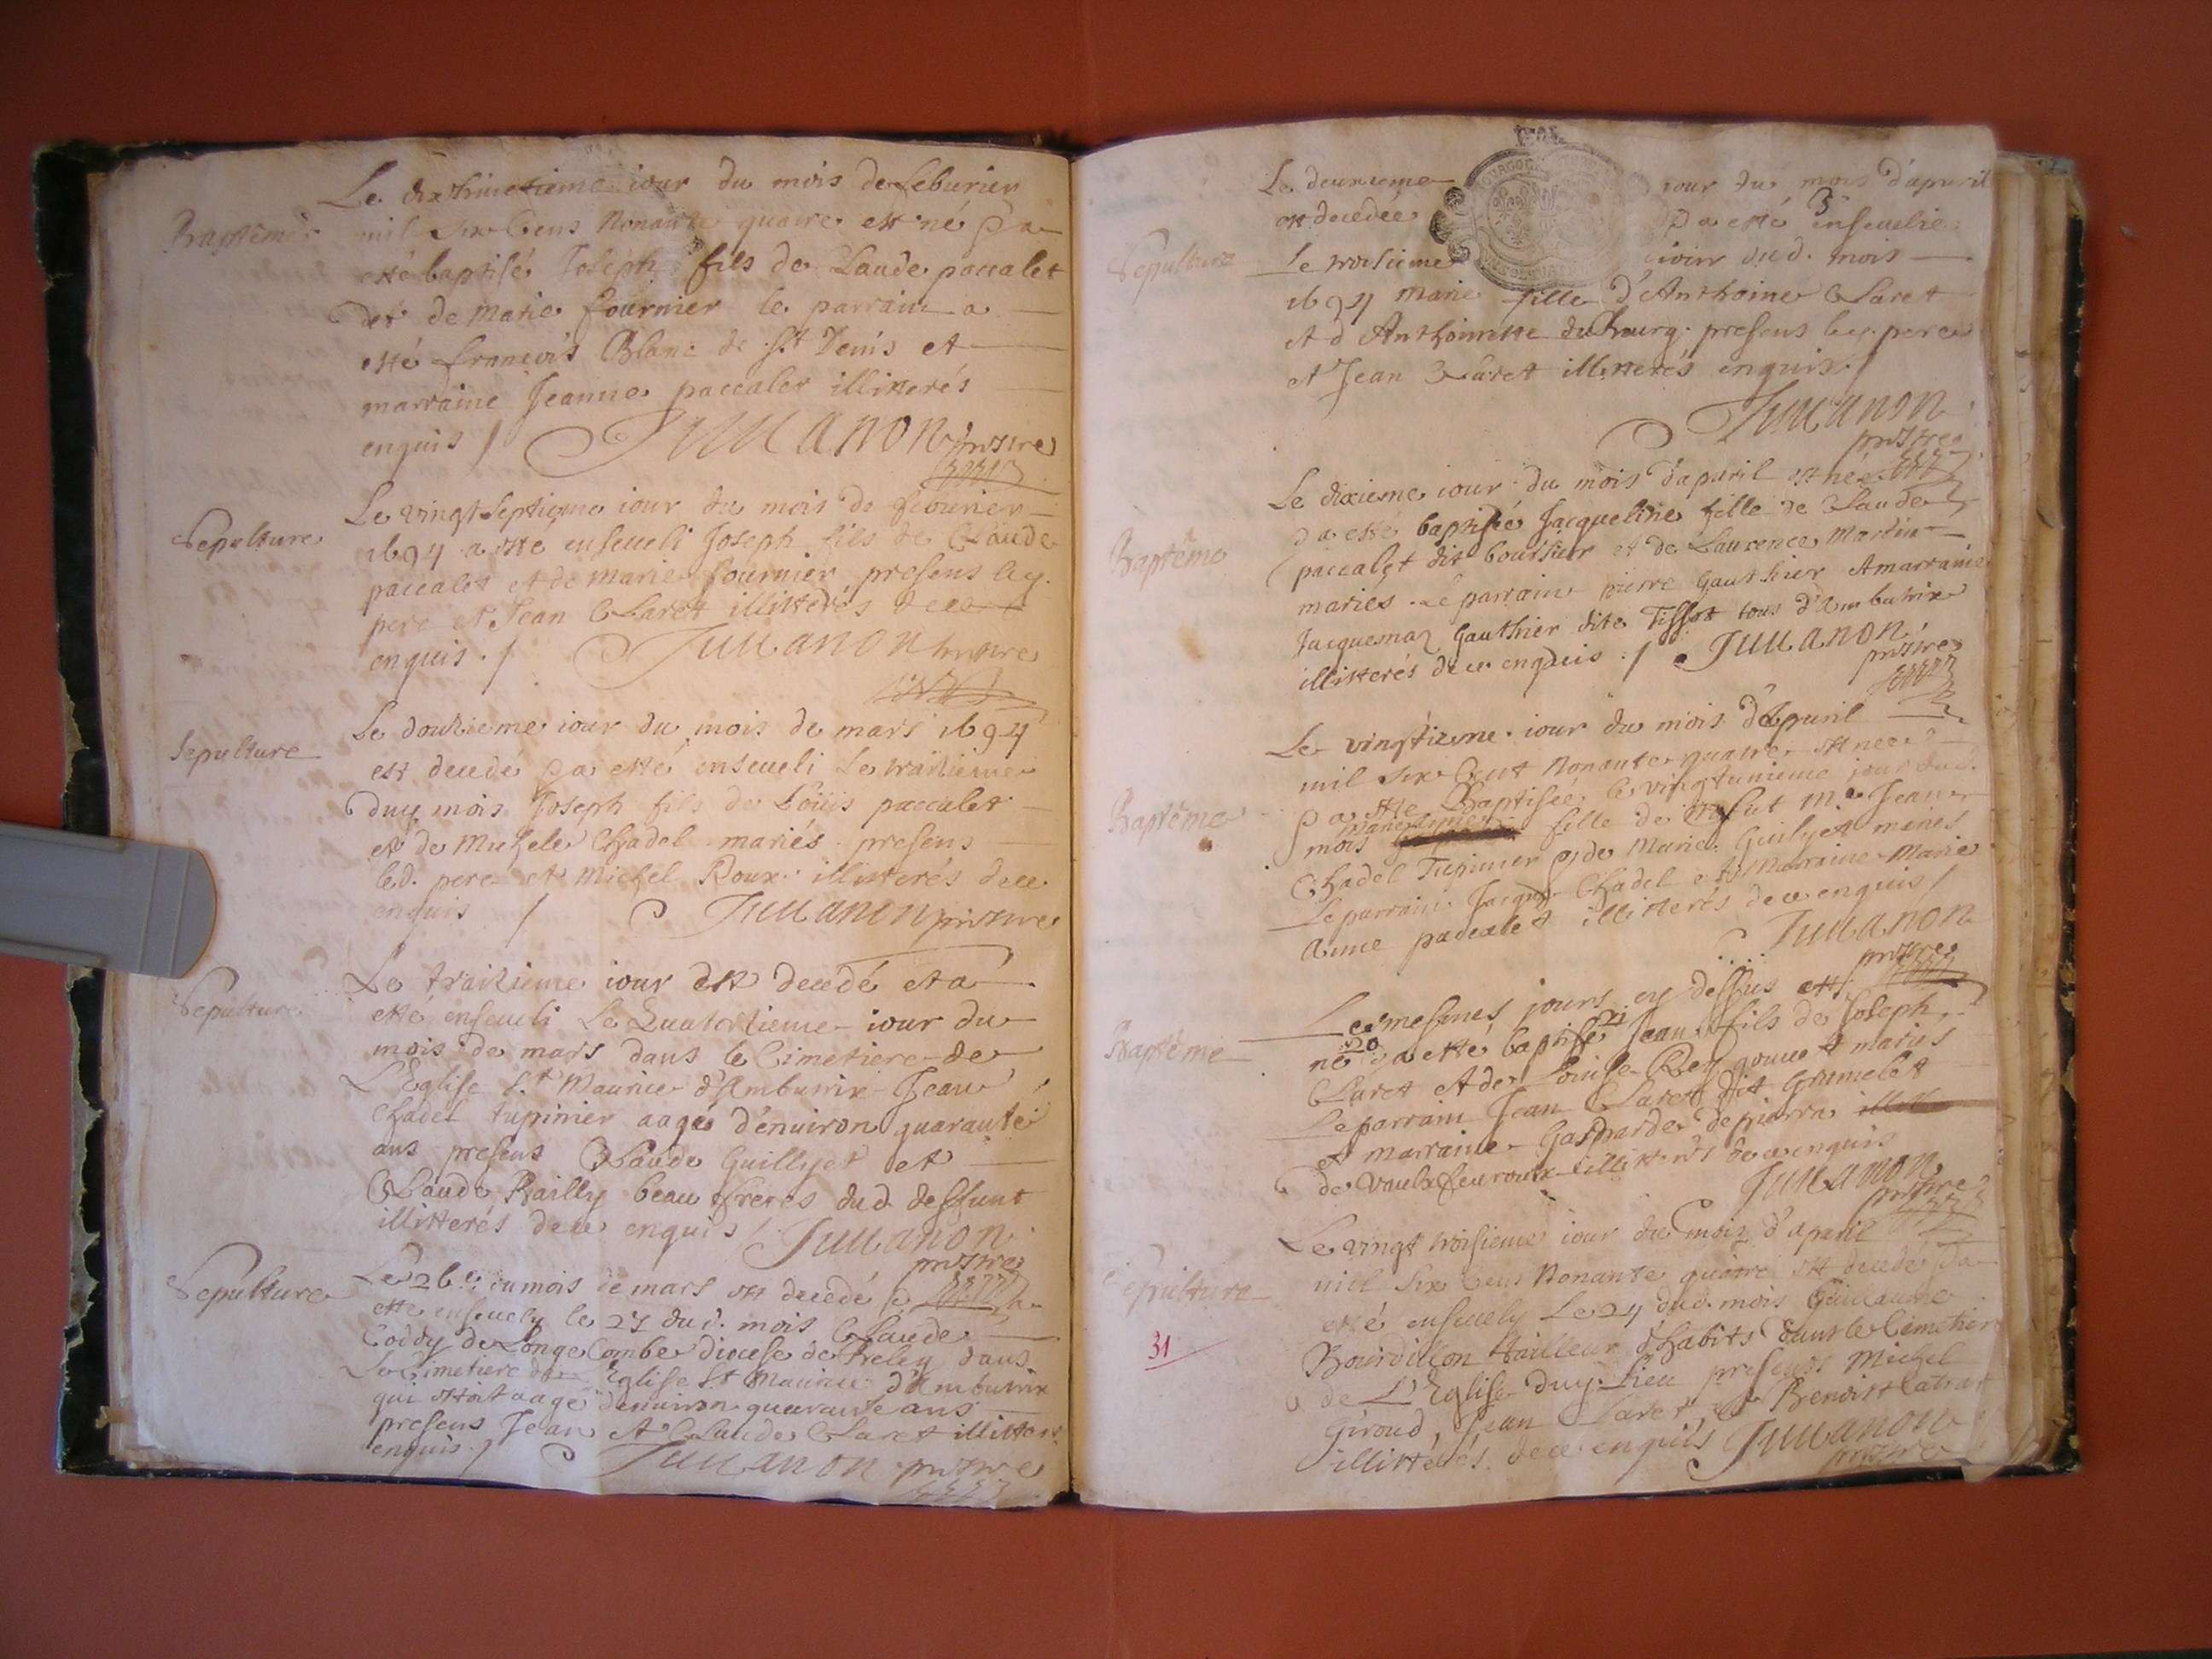 Baptême
Le dixhuictieme iour du mois de feburier
mil six Cens Nonante quatre est né & a
esté baptisé Joseph fils de Claude paccalet
et de Marie fournier le parrain a
esté francois Blanc de St Denis et
marraine Jeanne paccalet illitterés
enquis / Jullanon prstre
Sepulture
Le vingt septieme iour du mois de feburier
1694 a esté enseueli Joseph fils de Claude
paccalet et de Marie fournier presens le
pere et Jean Claret illitterés de ce
enquis . / Jullanon prstre
Sepulture
Le douzieme iour du mois de mars 1694
est decedé & a esté enseueli le traizieme
duy mois Joseph fils de Loüis paccalet
et de Michele Chadel mariés presens
led. pere et Michel Roux illitterés de ce
enquis / Jullanon prstre
Sepulture
Le traizieme iour est decedé et a
esté enseueli Le Quatorzieme iour du
mois de mars dans le Cimetiere de
L'Eglise St Maurice d'Ambutrix Jean
Chadel tupinier aagé d'enuiron quarante
ans presens Claude Guillyet et
Claude Railly beau freres dud. deffunt
illitterés de ce enquis / Jullanon
prstre
Sepulture
Le 26e du mois de mars est decedé & a
esté enseuely le 27 dud. mois Claude
Coddy de Longecombe diocese de Beley dans
Le Cimetiere de Eglise St Maurice d'Ambutrix
qui estoit aagé denuiron quarante ans
presens Jean et Claude Claret illitterés
enquis . / Jullanon prstre
Sepulture
Le deuxieme iour du mois d'apuril
est decedée & a esté enseuelie
Le troisieme iour dud. mois
1694 Marie fille d'Anthoine Claret
et d'Anthoinette du bourg presens le pere
et Jean Claret illitterés enquis . /
Jullanon
prstre
Baptême
Le dixieme iour du mois d'apuril est née
& a esté baptisée Jacqueline fille de Claude
paccalet dit boursier et de Laurence Martin
mariés . Le parrain pierre Gauthier et marraine
Jacquema Gauthier dite Tissot tous d'Ambutrix
illitterés de ce enquis : / Jullanon
prstre
Baptême
Le vingtieme iour du mois d'Apuril
mil six Cent Nonante quatre est née
& a esté Baptisée le vingtunieme iour dud.
mois fille de deffut Me Jean
Chadel Tupinier & de Marie Guilyet mariés
Le parrain Jacques Chadel et Marraine Marie
Aimé paccalet illitterés de ce enquis /
Jullanon
prstre
Baptême
Les mesmes jours cy dessus est
né 20 & a esté baptisé 21 Jean fils de Joseph
Claret et de Louise Rey mariés
Le parrain Jean Claret dit Grumelet
et marraine Gasparde depierre
de vaulx illitterés de ce enquis
Jullanon
prstre
Sepulture
31
Le vingt troisieme iour du mois d'apuril
mil six Cens Nonante quatre est decedé & a
esté enseuely Le 24 dud. mois Guillaume
Bourdillon tailleur d'habits dans le Cimetiere
de L'Eglise duy Lieu presents Michel
Giroud, Jean Claret, & Benoist
illitterés de ce enquis Jullanon
prstre